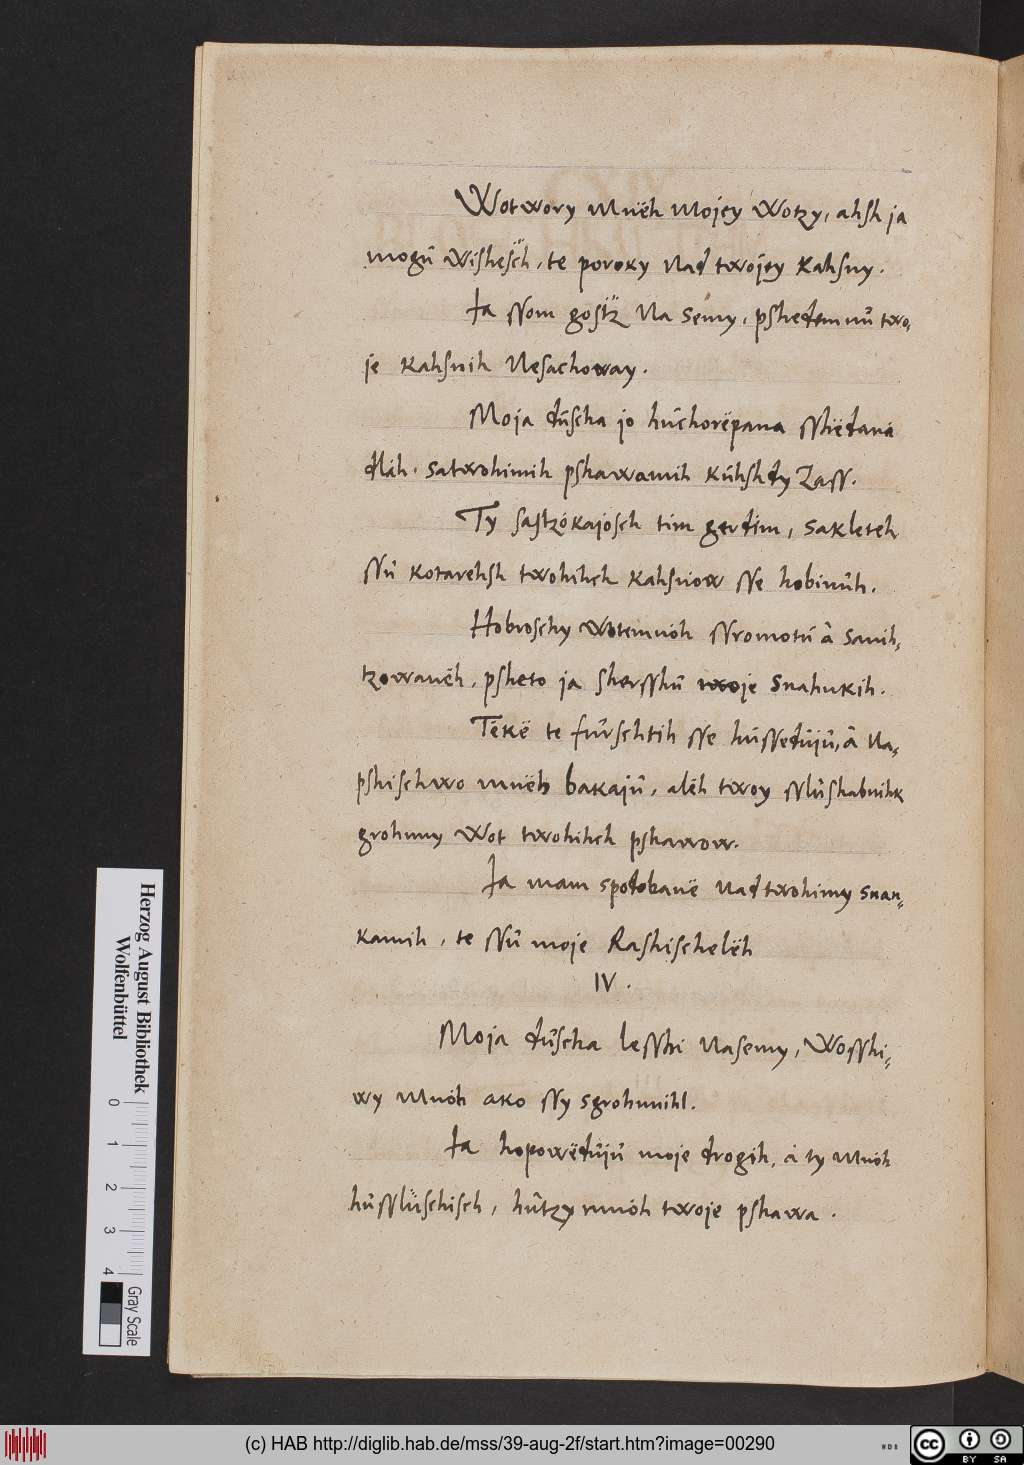 Wotwory mnëh mojey wotzy, ahsh ja
mogŭ wishesch, te poroky nad twojey kahsny.
Ja ssom gostz na semy, pshedemnŭ two=
je kahsnih nesachoway.
Moja dŭscha jo hŭchorëpana sshëdana
dlah. satwohimih pshawamih kŭhshdy Zass.
Ty sastzókajósch tim gerdim, sakleteh
ssŭ kotarehsh twohihch kahsniow sse hobinŭh.
Hobroschy wotemnóh ssromotŭ à sanih=
tzowanëh, psheto ja shersshŭ twoje snahukih.
Tëkë te fŭrschtih sse hŭssedŭjŭ, à na=
pshischiwo mnëh bakajŭ, alëh twoy sslŭshabnihk
grohnny wot twohihch pshawow.
Ja mam spodobanë nad twohimy snan=
kamih, te ssŭ moje Rashischelëh
IV.
Moja dŭscha lesshi nasemy, wosshi=
wy mnóh ako ssy sgrohnnihl.
Ja hopowëdŭjŭ moje drogih, à ty mnóh
hŭsslŭschisch, hŭtzy mnóh twoje pshawa.
Herzog August Bibliothek
Wolfenbüttel
0 1 2 3 4
Gray Scale
(c) HAB http://diglib.hab.de/mss/39-aug-2f/start.htm?image=00290
WDB
cc BY SA